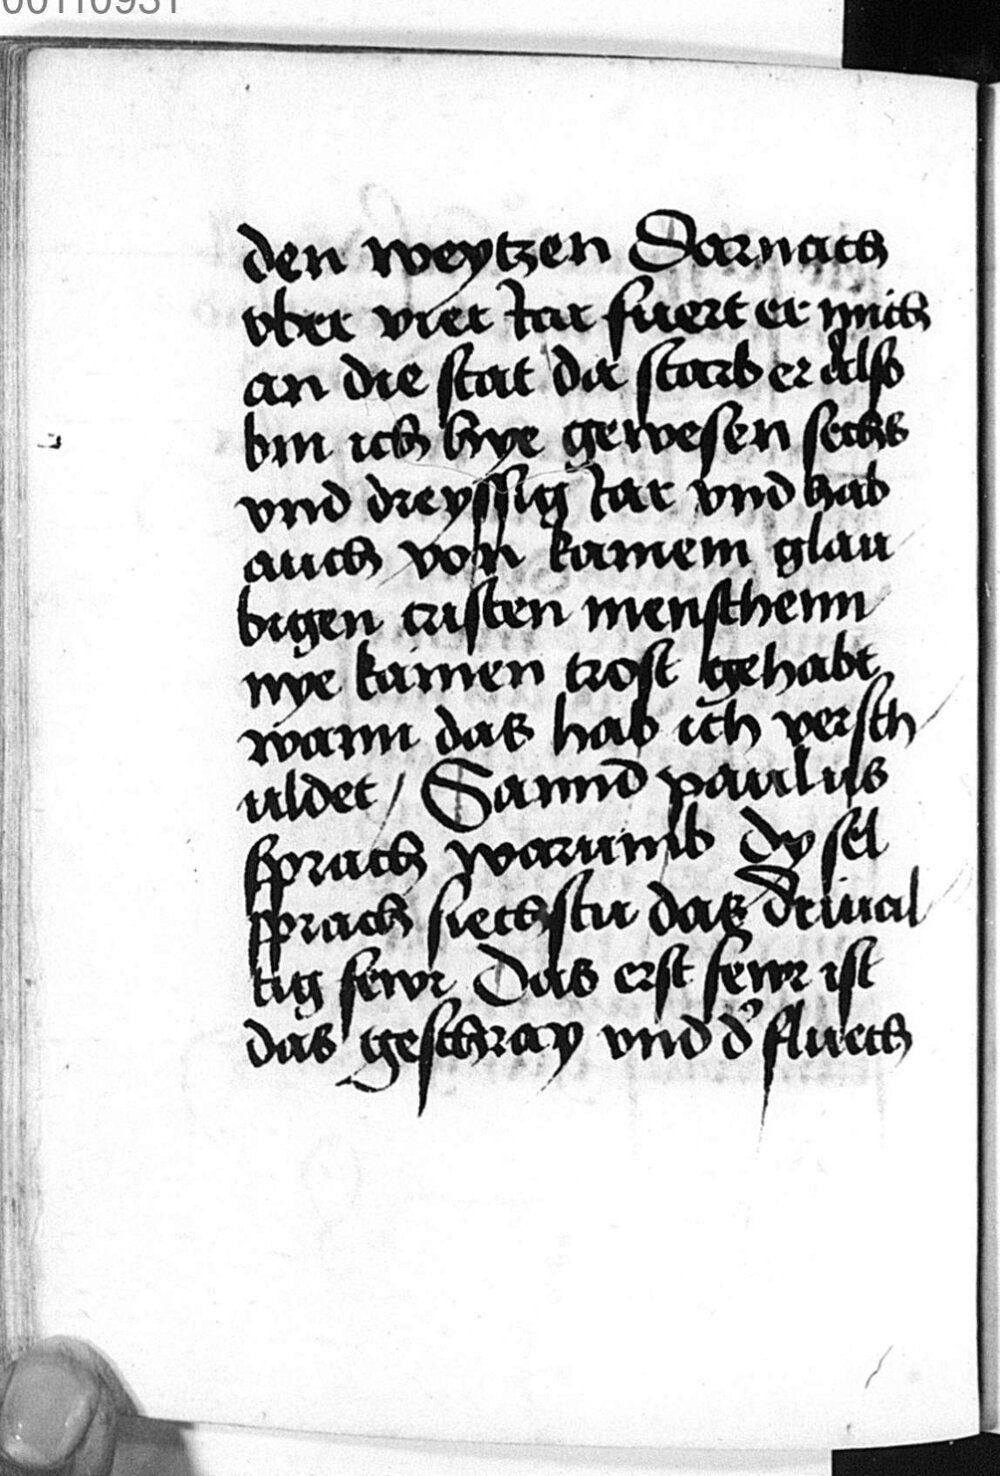 00110931
den weytzen Darnach
vber vier Iar fuert er mich
an die stat da starb er Also
bin ich hye gewesen sechs
vnd dreyssig Iar vnd hab
auch von kainem glau
bigen cristen menschenn
nye kainen trost gehabt
wann das hab ich versch
uldet / Sannd paulus
sprach warumb dy sel
sprach siechstu das drival
tig fewr Das erst fewr ist
das geschray vnd d' fluech